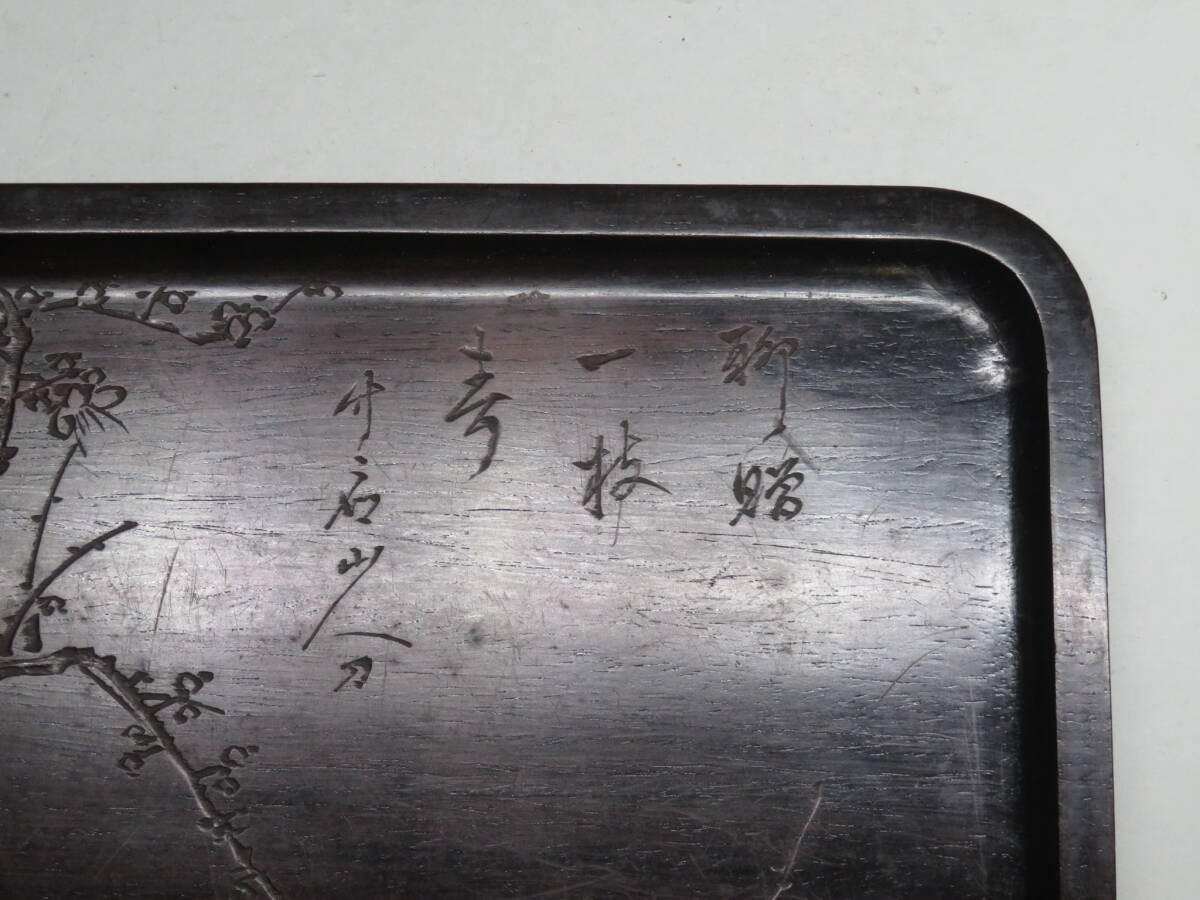 聊贈
一枝
春
竹石山人刀